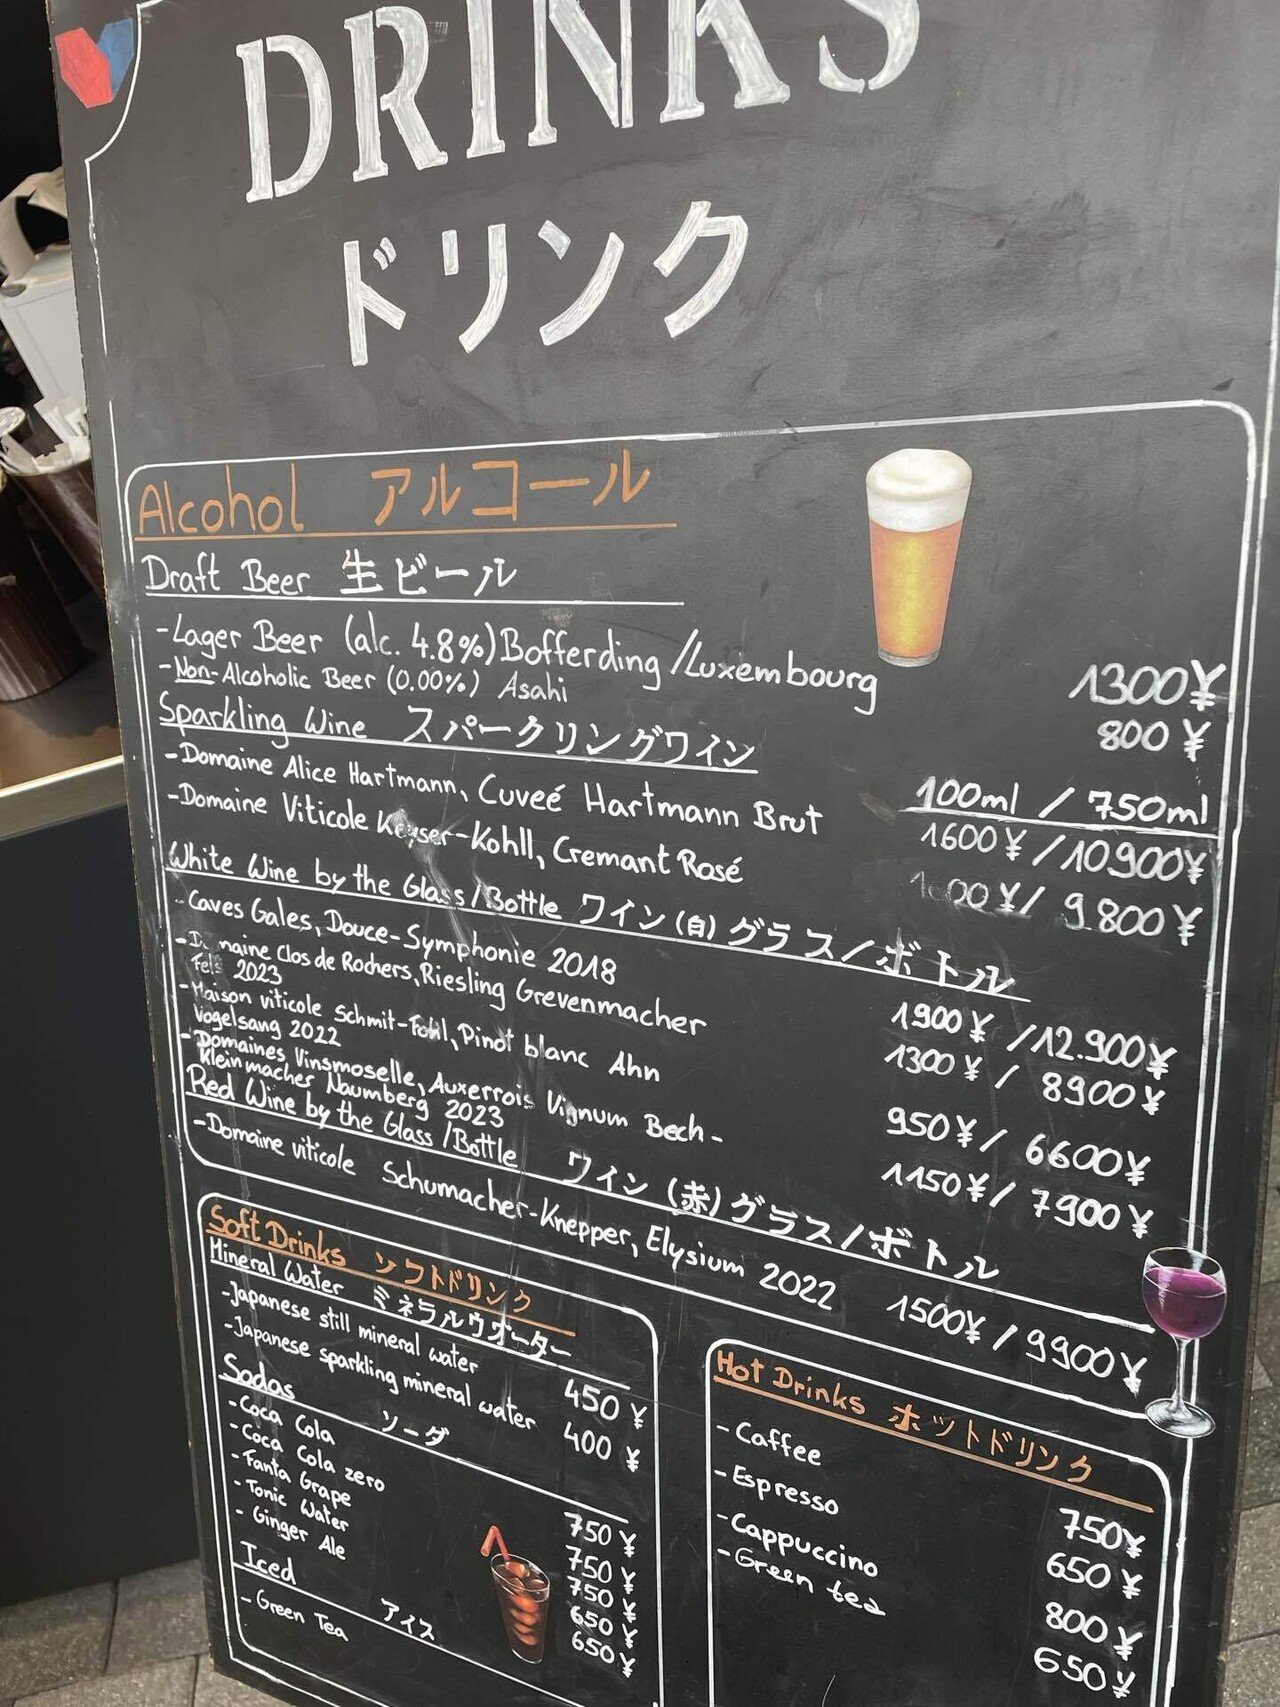 DRINKS
ドリンク
Alcohol アルコール
Draft Beer 生ビール
-Lager Beer (alc. 4.8%) Bofferding /Luxembourg 1300¥
-Non-Alcoholic Beer (0.00%) Asahi 800¥
Sparkling Wine スパークリングワイン
100ml / 750ml
-Domaine Alice Hartmann, Cuveé Hartmann Brut 1600¥ / 10900¥
-Domaine Viticole Keyser-Kohll, Cremant Rosé / 9800¥
White Wine by the Glass/Bottle ワイン(白)グラス/ボトル
-Caves Gales, Douce-Symphonie 2018 1900¥ / 12.900¥
-Domaine Clos de Rochers, Riesling Grevenmacher 1300¥ / 8900¥
Fels 2023
-Maison viticole Schmit-Fohl, Pinot blanc Ahn 950¥ / 6600¥
Vogelsang 2022
-Domaines Vinsmoselle, Auxerrois Vignum Bech- 1150¥ / 7900¥
Kleinmacher Naumberg 2023
Red Wine by the Glass/Bottle ワイン(赤)グラス/ボトル
-Domaine viticole Schumacher-Knepper, Elysium 2022 1500¥ / 9900¥
Soft Drinks ソフトドリンク
Mineral Water ミネラルウオーター
-Japanese still mineral water 450¥
-Japanese sparkling mineral water 400¥
Sodas ソーダ
-Coca Cola 750¥
-Coca Cola zero 750¥
-Fanta Grape 750¥
-Tonic Water 650¥
-Ginger Ale 650¥
Iced アイス
-Green Tea
Hot Drinks ホットドリンク
-Caffee 750¥
-Espresso 650¥
-Cappuccino 800¥
-Green tea 650¥